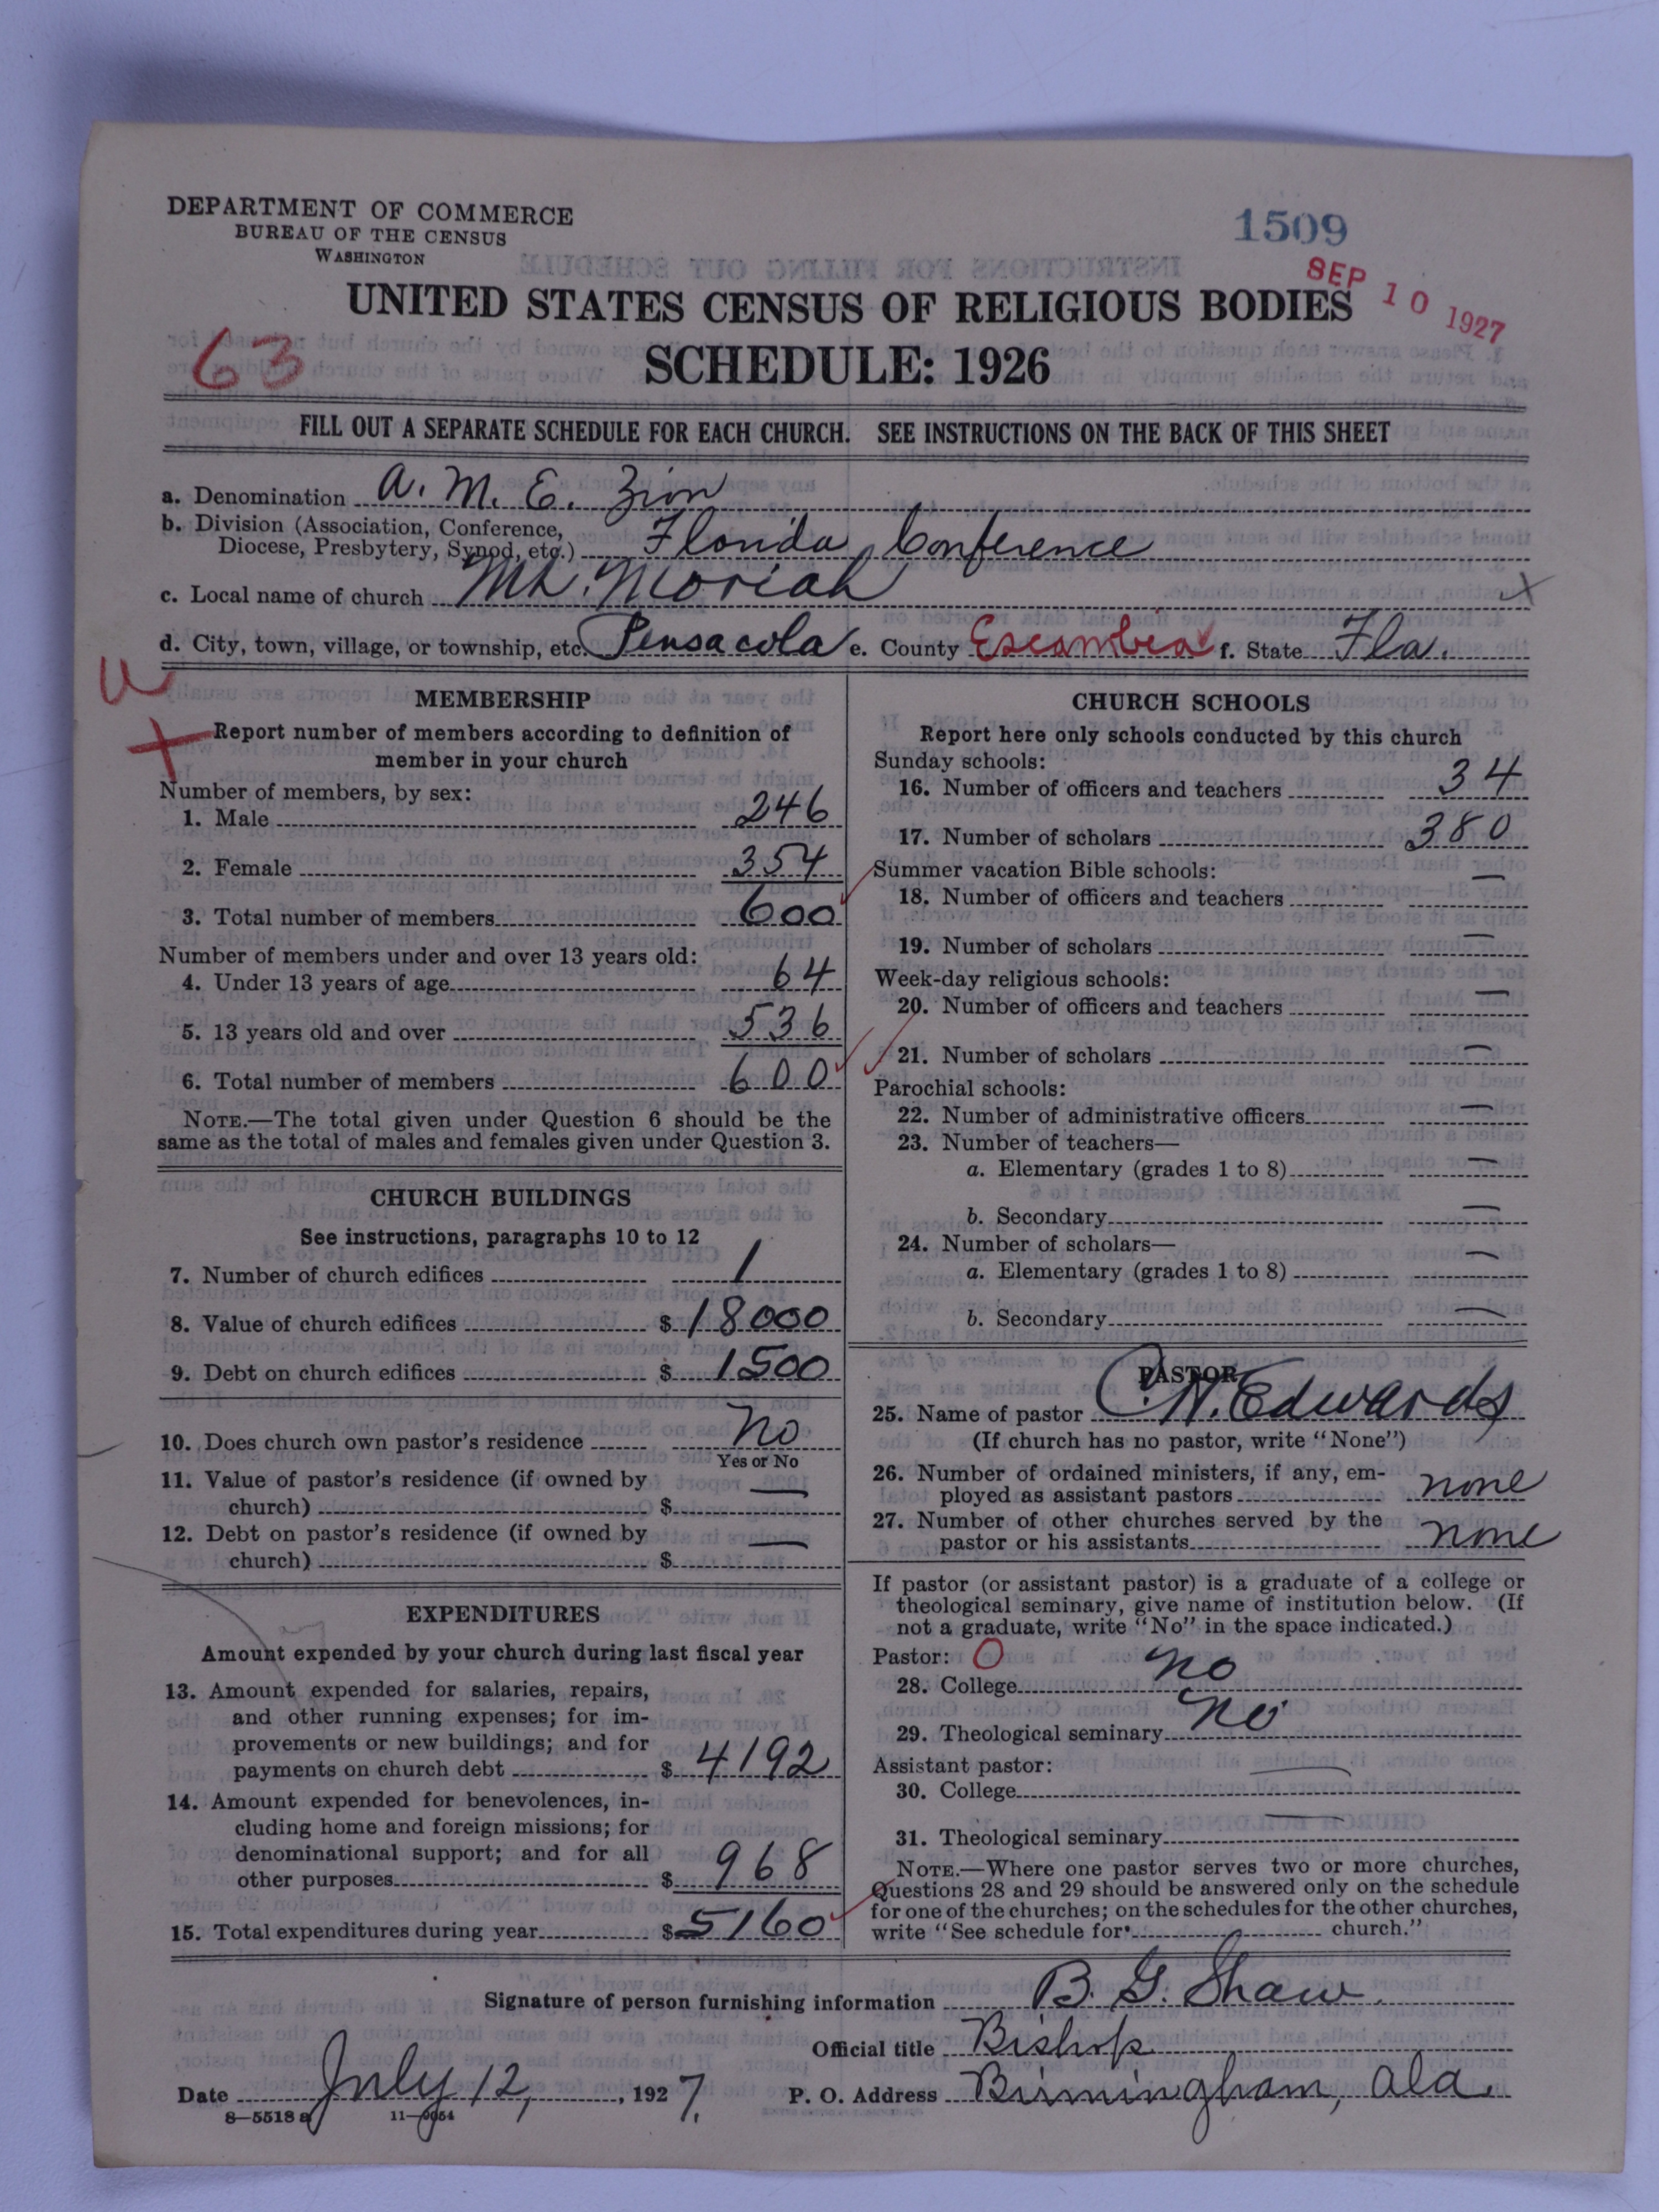 DEPARTMENT OF COMMERCE
BUREAU OF THE CENSUS
WASHINGTON
1509
SEP 10 1927
UNITED STATES CENSUS OF RELIGIOUS BODIES
63
SCHEDULE: 1926
FILL OUT A SEPARATE SCHEDULE FOR EACH CHURCH. SEE INSTRUCTIONS ON THE BACK OF THIS SHEET
a. Denomination A. M. E. Zion
b. Division (Association, Conference,
Diocese, Presbytery, Synod, etc.) Florida Conference
c. Local name of church Mt. Moriah
d. City, town, village, or township, etc. Pensacola e. County Escambia f. State Fla.
MEMBERSHIP
Report number of members according to definition of
member in your church
Number of members, by sex:
1. Male 246
2. Female 354
3. Total number of members 600
Number of members under and over 13 years old:
4. Under 13 years of age 64
5. 13 years old and over 536
6. Total number of members 600
NOTE.—The total given under Question 6 should be the
same as the total of males and females given under Question 3.
CHURCH BUILDINGS
See instructions, paragraphs 10 to 12
7. Number of church edifices 1
8. Value of church edifices $ 18000
9. Debt on church edifices $ 1500
10. Does church own pastor's residence No
Yes or No
11. Value of pastor's residence (if owned by
church) $ —
12. Debt on pastor's residence (if owned by
church) $ —
EXPENDITURES
Amount expended by your church during last fiscal year
13. Amount expended for salaries, repairs,
and other running expenses; for im-
provements or new buildings; and for
payments on church debt $ 4192
14. Amount expended for benevolences, in-
cluding home and foreign missions; for
denominational support; and for all
other purposes $ 968
15. Total expenditures during year $ 5160
CHURCH SCHOOLS
Report here only schools conducted by this church
Sunday schools:
16. Number of officers and teachers 34
17. Number of scholars 380
Summer vacation Bible schools:
18. Number of officers and teachers —
19. Number of scholars —
Week-day religious schools:
20. Number of officers and teachers —
21. Number of scholars —
Parochial schools:
22. Number of administrative officers —
23. Number of teachers—
a. Elementary (grades 1 to 8) —
b. Secondary —
24. Number of scholars—
a. Elementary (grades 1 to 8) —
b. Secondary —
PASTOR
25. Name of pastor C. N. Edwards
(If church has no pastor, write "None")
26. Number of ordained ministers, if any, em-
ployed as assistant pastors none
27. Number of other churches served by the
pastor or his assistants none
If pastor (or assistant pastor) is a graduate of a college or
theological seminary, give name of institution below. (If
not a graduate, write "No" in the space indicated.)
Pastor: O
28. College no
29. Theological seminary no
Assistant pastor:
30. College —
31. Theological seminary —
NOTE.—Where one pastor serves two or more churches,
Questions 28 and 29 should be answered only on the schedule
for one of the churches; on the schedules for the other churches,
write "See schedule for church."
Signature of person furnishing information B. G. Shaw.
Official title Bishop
Date July 12, 1927. P. O. Address Birmingham, Ala.
8—5518 a 11—9054